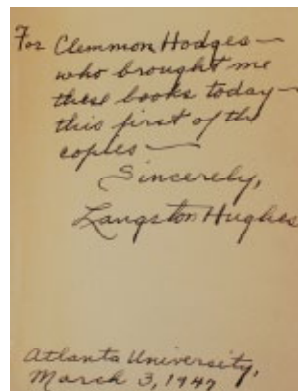 For Clemmon Hodges—
who brought me
these books today—
this first of the
copies—
Sincerely,
Langston Hughes
Atlanta University,
March 3, 1947